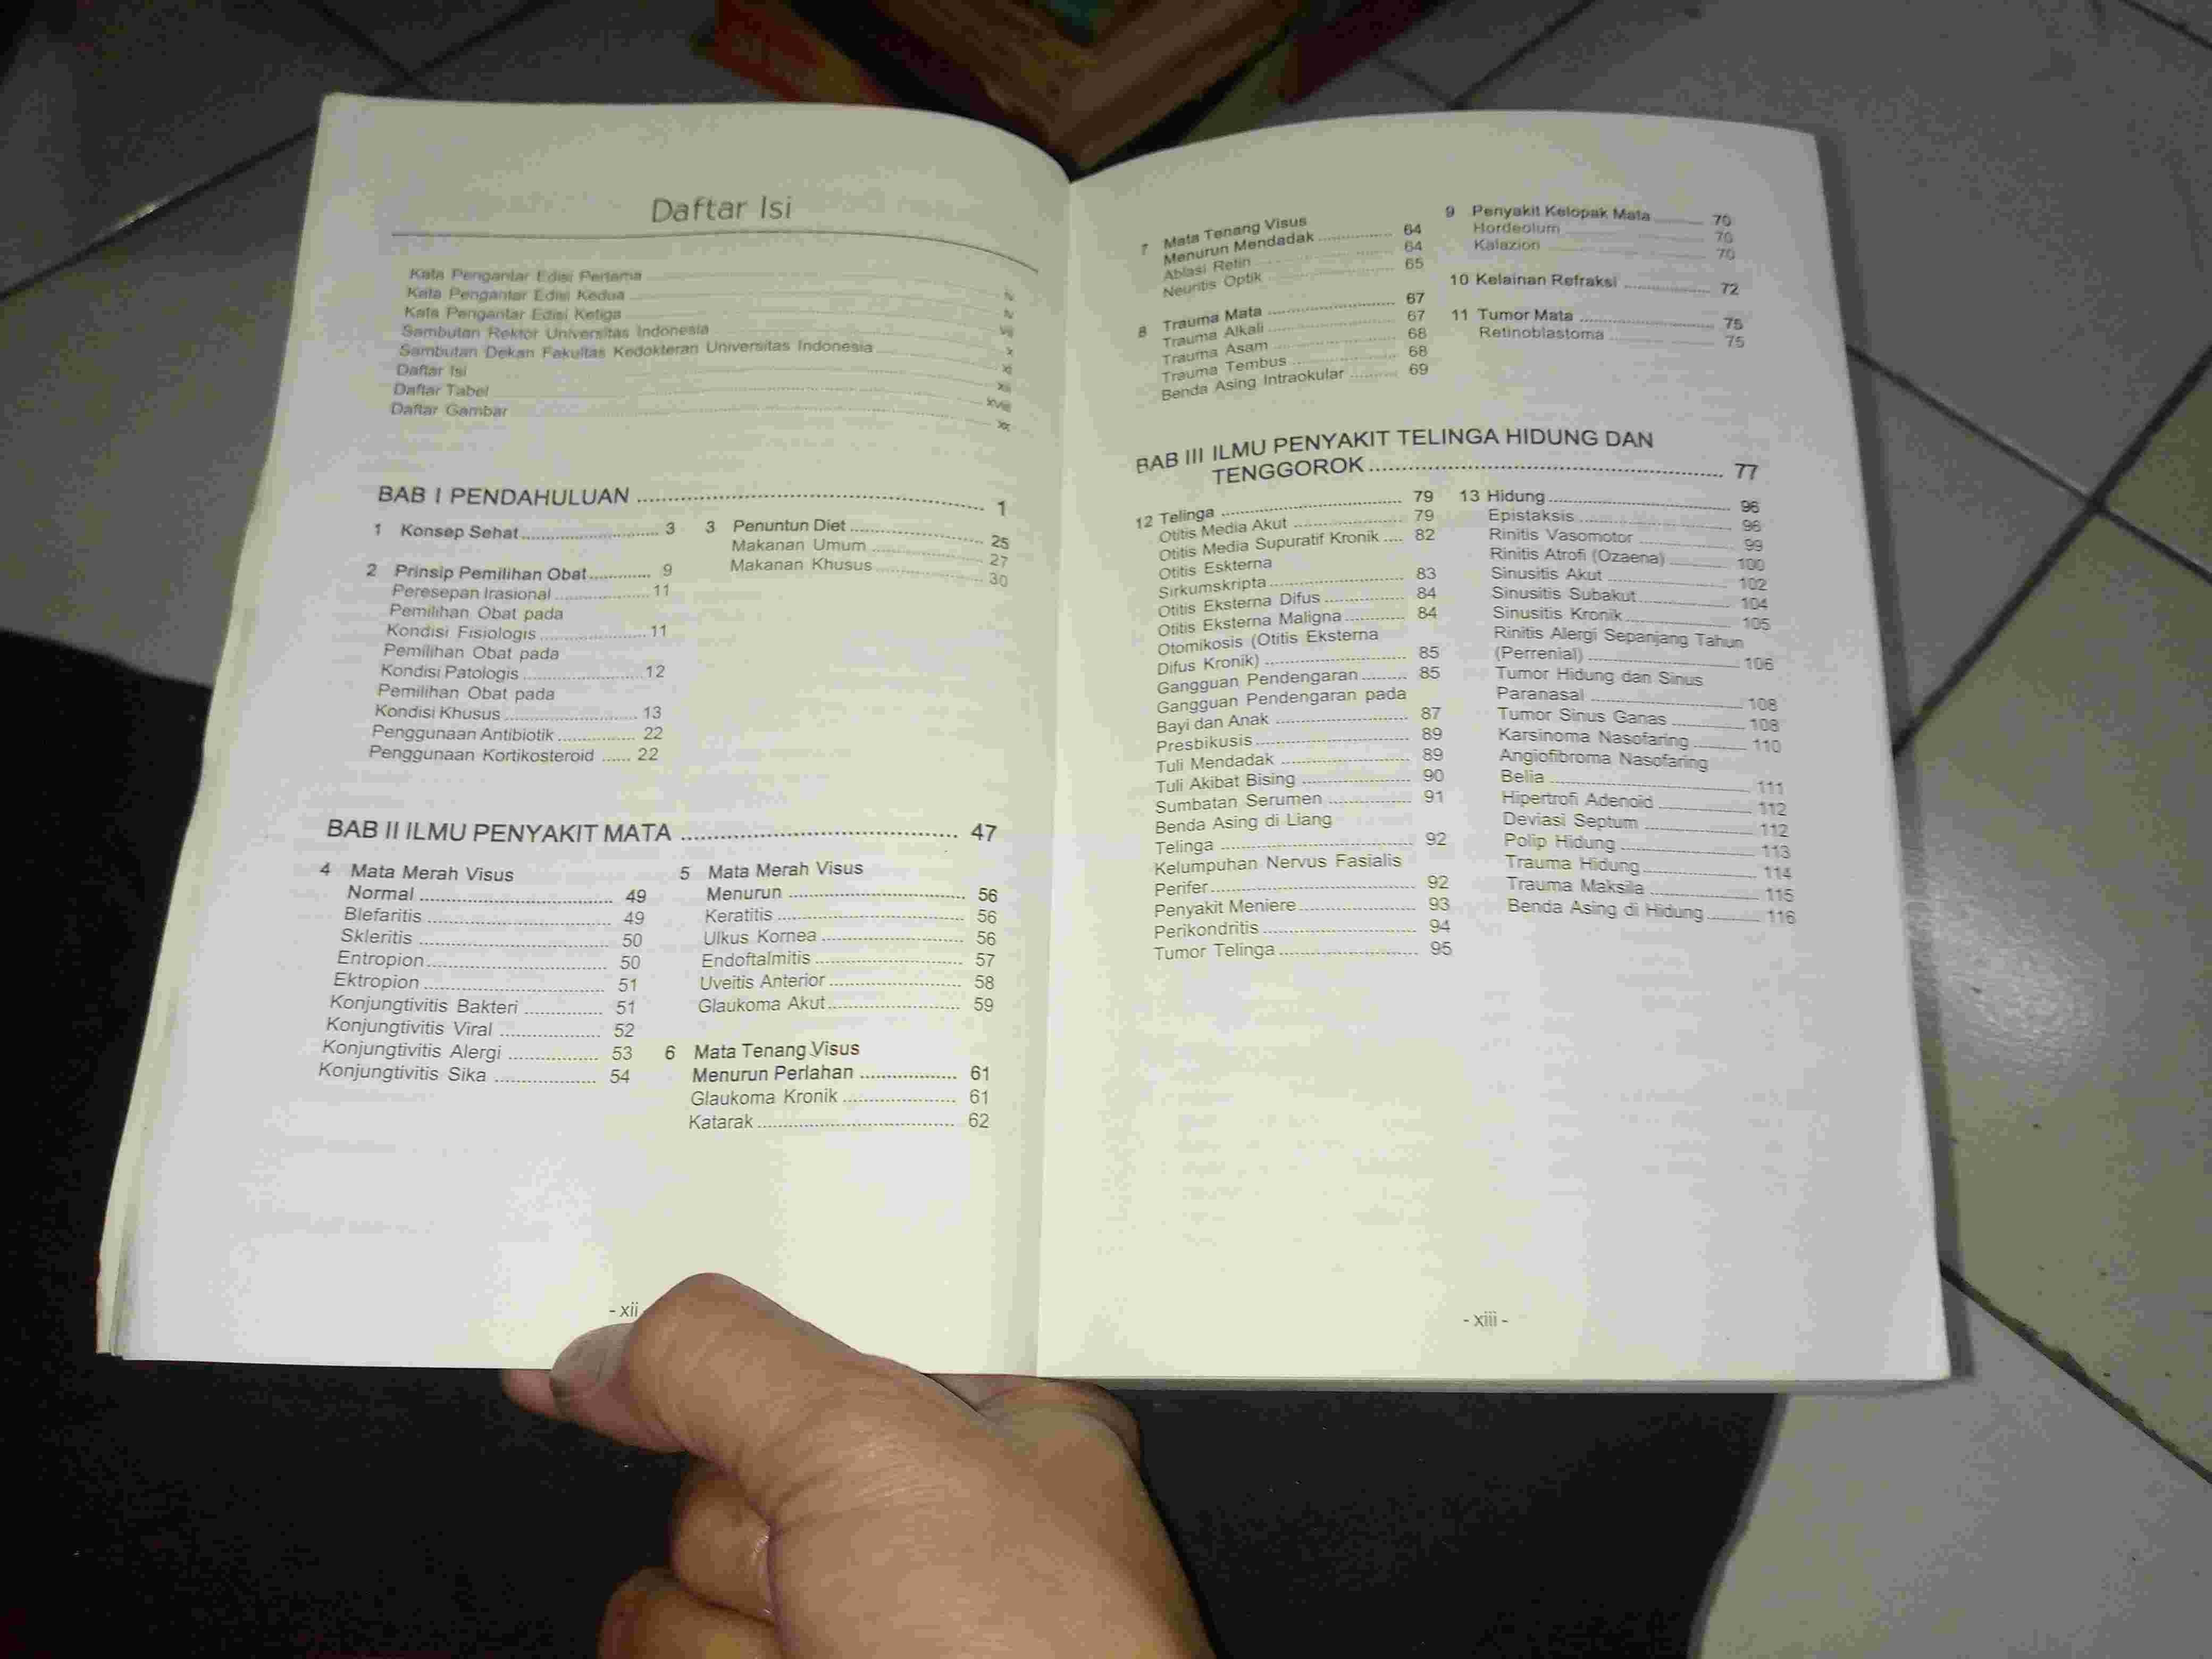 Daftar Isi
Kata Pengantar Edisi Pertama
Kata Pengantar Edisi Kedua iv
Kata Pengantar Edisi Ketiga
Sambutan Rektor Universitas Indonesia x
Sambutan Dekan Fakultas Kedokteran Universitas Indonesia xi
Daftar Isi xii
Daftar Tabel xviii
Daftar Gambar xx
BAB I PENDAHULUAN 1
1 Konsep Sehat 3
2 Prinsip Pemilihan Obat 9
Peresepan Irasional 11
Pemilihan Obat pada
Kondisi Fisiologis 11
Pemilihan Obat pada
Kondisi Patologis 12
Pemilihan Obat pada
Kondisi Khusus 13
Penggunaan Antibiotik 22
Penggunaan Kortikosteroid 22
3 Penuntun Diet 25
Makanan Umum 27
Makanan Khusus 30
BAB II ILMU PENYAKIT MATA 47
4 Mata Merah Visus
Normal 49
Blefaritis 49
Skleritis 50
Entropion 50
Ektropion 51
Konjungtivitis Bakteri 51
Konjungtivitis Viral 52
Konjungtivitis Alergi 53
Konjungtivitis Sika 54
5 Mata Merah Visus
Menurun 56
Keratitis 56
Ulkus Kornea 56
Endoftalmitis 57
Uveitis Anterior 58
Glaukoma Akut 59
6 Mata Tenang Visus
Menurun Perlahan 61
Glaukoma Kronik 61
Katarak 62
- xii
7 Mata Tenang Visus
Menurun Mendadak 64
Ablasi Retin 64
Neuritis Optik 65
8 Trauma Mata 67
Trauma Alkali 67
Trauma Asam 68
Trauma Tembus 68
Benda Asing Intraokular 69
9 Penyakit Kelopak Mata 70
Hordeolum 70
Kalazion 70
10 Kelainan Refraksi 72
11 Tumor Mata 75
Retinoblastoma 75
BAB III ILMU PENYAKIT TELINGA HIDUNG DAN
TENGGOROK 77
12 Telinga 79
Otitis Media Akut 79
Otitis Media Supuratif Kronik 82
Otitis Eskterna
Sirkumskripta 83
Otitis Eksterna Difus 84
Otitis Eksterna Maligna 84
Otomikosis (Otitis Eksterna
Difus Kronik) 85
Gangguan Pendengaran 85
Gangguan Pendengaran pada
Bayi dan Anak 87
Presbikusis 89
Tuli Mendadak 89
Tuli Akibat Bising 90
Sumbatan Serumen 91
Benda Asing di Liang
Telinga 92
Kelumpuhan Nervus Fasialis
Perifer 92
Penyakit Meniere 93
Perikondritis 94
Tumor Telinga 95
13 Hidung 96
Epistaksis 96
Rinitis Vasomotor 99
Rinitis Atrofi (Ozaena) 100
Sinusitis Akut 102
Sinusitis Subakut 104
Sinusitis Kronik 105
Rinitis Alergi Sepanjang Tahun
(Perrenial) 106
Tumor Hidung dan Sinus
Paranasal 108
Tumor Sinus Ganas 108
Karsinoma Nasofaring 110
Angiofibroma Nasofaring
Belia 111
Hipertrofi Adenoid 112
Deviasi Septum 112
Polip Hidung 113
Trauma Hidung 114
Trauma Maksila 115
Benda Asing di Hidung 116
- xiii -